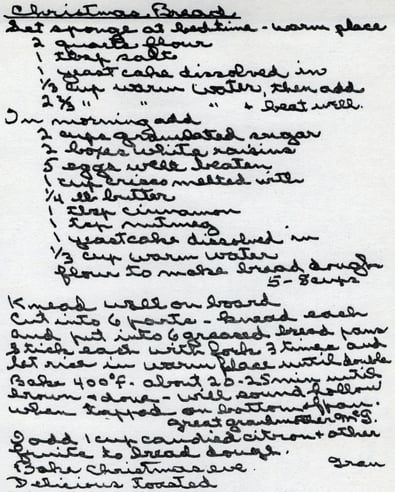 Christmas Bread
Set sponge at bedtime - warm place
2 quarts flour
1 tbsp salt
1 yeast cake dissolved in
1/3 cup warm water, then add
2 2/3 " " " + beat well.
In morning add
2 cups granulated sugar
2 boxes white raisins
5 eggs well beaten
1 cup crisco melted with
1/4 lb butter
1 tbsp cinnamon
1 tsp nutmeg
1 yeastcake dissolved in
1/3 cup warm water
flour to make bread dough
5-8 cups
Knead well on board
Cut into 6 parts - knead each
and put into 6 greased bread pans
Stick each with fork 3 times and
let rise in warm place until double
Bake 400°F. about 20-25 min until
brown + done - will sound hollow
when tapped on bottom of pan.
great grandmother McG.
I add 1 cup candied citron + other
fruits to bread dough.
Bake Christmas eve. Gran
Delicious toasted